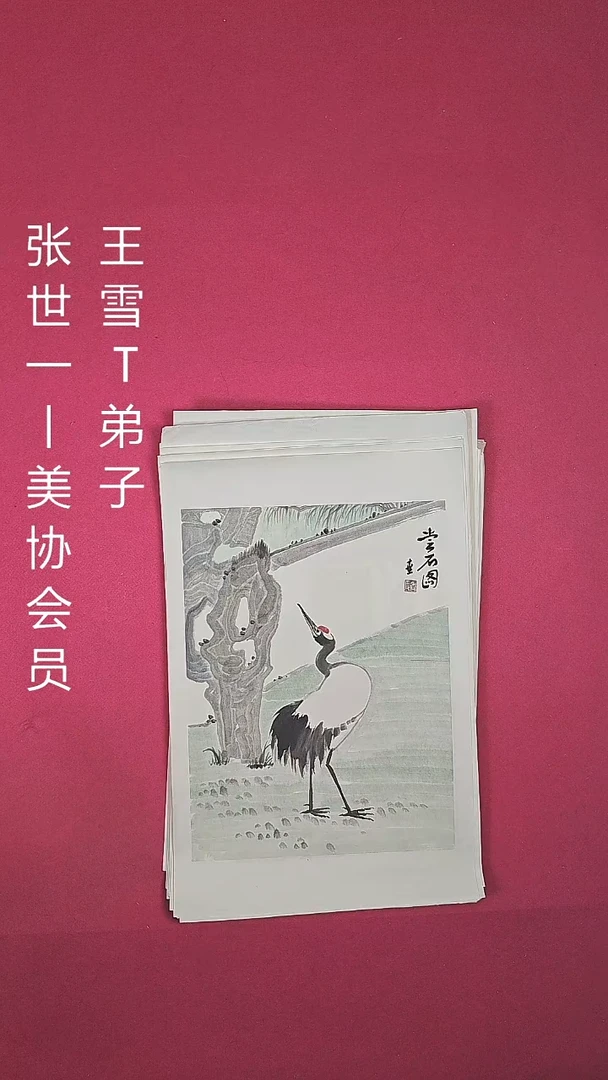 王雪T弟子
张世一丨美协会员
石图